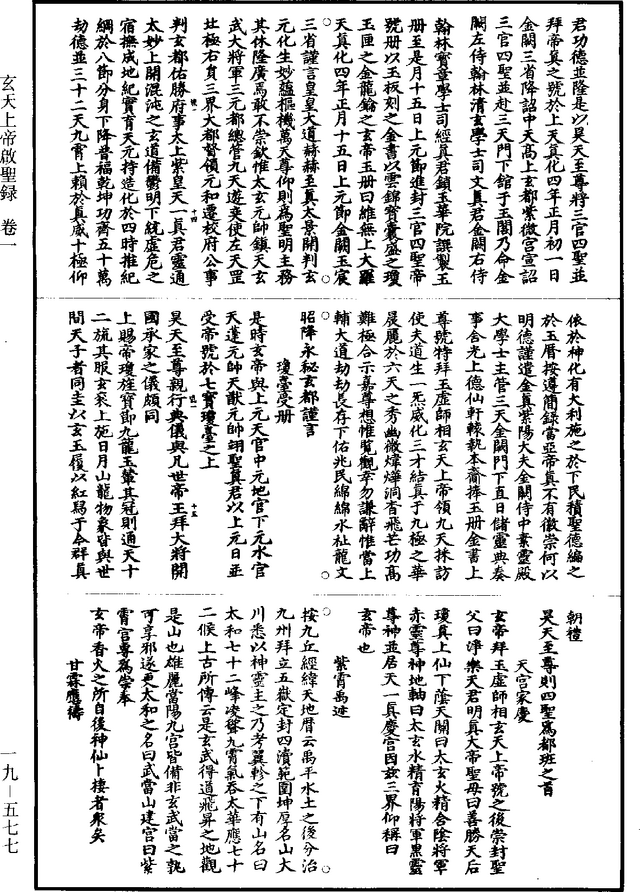 玄天上帝啟聖録 卷一
君功德並隆是以昊天至尊將三官四聖並
拜帝真之號於上天真化四年正月初一日
金闕三省降詔中天高上玄都紫微宮宣詔
三官四聖並赴三天門下舘于玉閣乃命金
闕左侍翰林清玄學士司文真君金闕右侍
翰林寶章學士司經真君鎖玉華院譔製玉
册至是月十五日上元節進封三官四聖帝
號册以玉板刻之金書以雲錦寶囊盛之瓊
玉匣之金龍鑰之玄帝玉册曰維無上大羅
天真化四年正月十五日上元節金闕玉宸
三省謹言皇皇大道赫赫至真太景開判玄
元化生妙蘊樞機萬天尊仰則爲聖明主務
其休隆廣焉敢不崇欽惟太玄元帥鎮天玄
武大將軍三元都總管九天遊奕使左天罡
北極右負三界大都督領元和遷校府公事
判玄都佑勝府事太上紫皇天一真君靈通
太妙上開混沌之玄道備鬱明下統虚危之
宿撫成地紀實育天元持造化於四時推紀
綱於八節分身下降普福乾坤功齊五十萬
劫德並三十二天九霄上賴於真威十極仰
依於神化有大利施之於下民積聖德編之
於玉曆按遵簡録當亞帝真不有徽崇何以
明德謹遣金真紫陽大夫金闕侍中素靈殿
大學士主管三天金闕門下直日儲靈典奏
事舍光上德仙軒轅執本齎捧玉册金書上
尊號特拜玉虚師相玄天上帝領九天採訪
使夫道生一炁威化三才結真于九極之華
晨麗於六天之秀幽微煒燁洞杳飛芒功高
難極合示嘉尊想惟覧觀幸勿謙辭惟當上
輔大道劫劫長存下佑兆民綿綿水祉龍文
昭降永秘玄都謹言
瓊臺受册
是時玄帝與上元天官中元地官下元水官
天蓬元帥天猷元帥翊聖真君以上元日並
受帝號於七寳瓊臺之上
昊天至尊親行典儀與凡世帝王拜大將開
國承家之儀頗同
上賜帝瓊旌寳節九龍玉輦其冠則通天十
二旒其服玄衮上施日月山龍物象皆與世
間天子者同圭以玄玉履以紅舄于今群真
朝禮
昊天至尊則四聖爲都班之首
天宮家慶
玄帝拜玉虚師相玄天上帝號之後崇封聖
父曰淨樂天君明真大帝聖母曰善勝天后
瓊真上仙下蔭天關曰太玄火精含陰將軍
赤靈尊神地軸曰太玄水精育陽將軍黑靈
尊神並居天一真慶宮因兹三界仰稱曰
玄帝也
紫霄禹迹
按九丘經緯天地曆云禹平水土之後分治
九州拜立五嶽定封四瀆範圍坤厚名山大
川悉以神靈主之乃考翼軫之下有山名曰
太和七十二峰凌聳九霄氣吞太華應七十
二候上古所傳云是玄武得道飛昇之地觀
是山也雄麗當陽九宮皆備非玄武當之孰
可享邪遂更太和之名曰武當山建宮曰紫
霄宮專爲崇奉
玄帝香火之所自後神仙卜棲者衆矣
甘霖應禱
一九—五七七